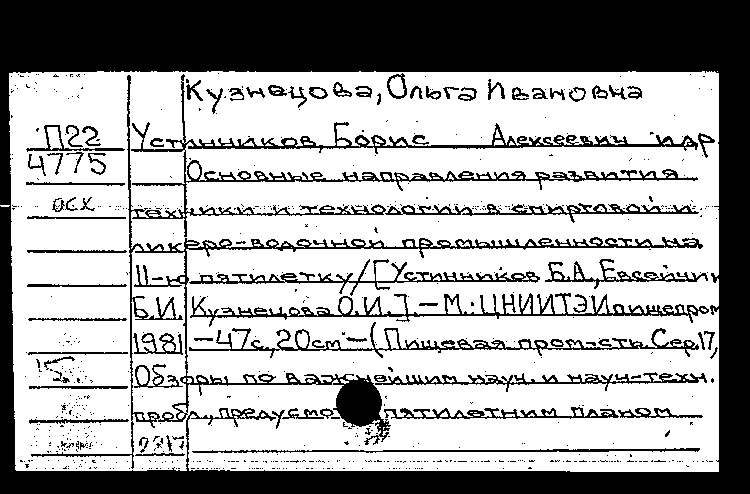 Кузнецова, Ольга Ивановна
П22 Устинников, Борис Алексеевич и др
4775 Основные направления развития
осх техники и технологии в спиртовой и
ликеро-водочной промышленности на
11-ю пятилетку/[Устинников Б.А., Евсейчик
Б.И. Кузнецова О.И.].-М.: ЦНИИТЭИпищепром
1981 -47с, 20см -(Пищевая пром-сть. Сер.17,
15 Обзоры по важнейшим науч. и науч-техн.
пробл., предусмо пятилетним планом